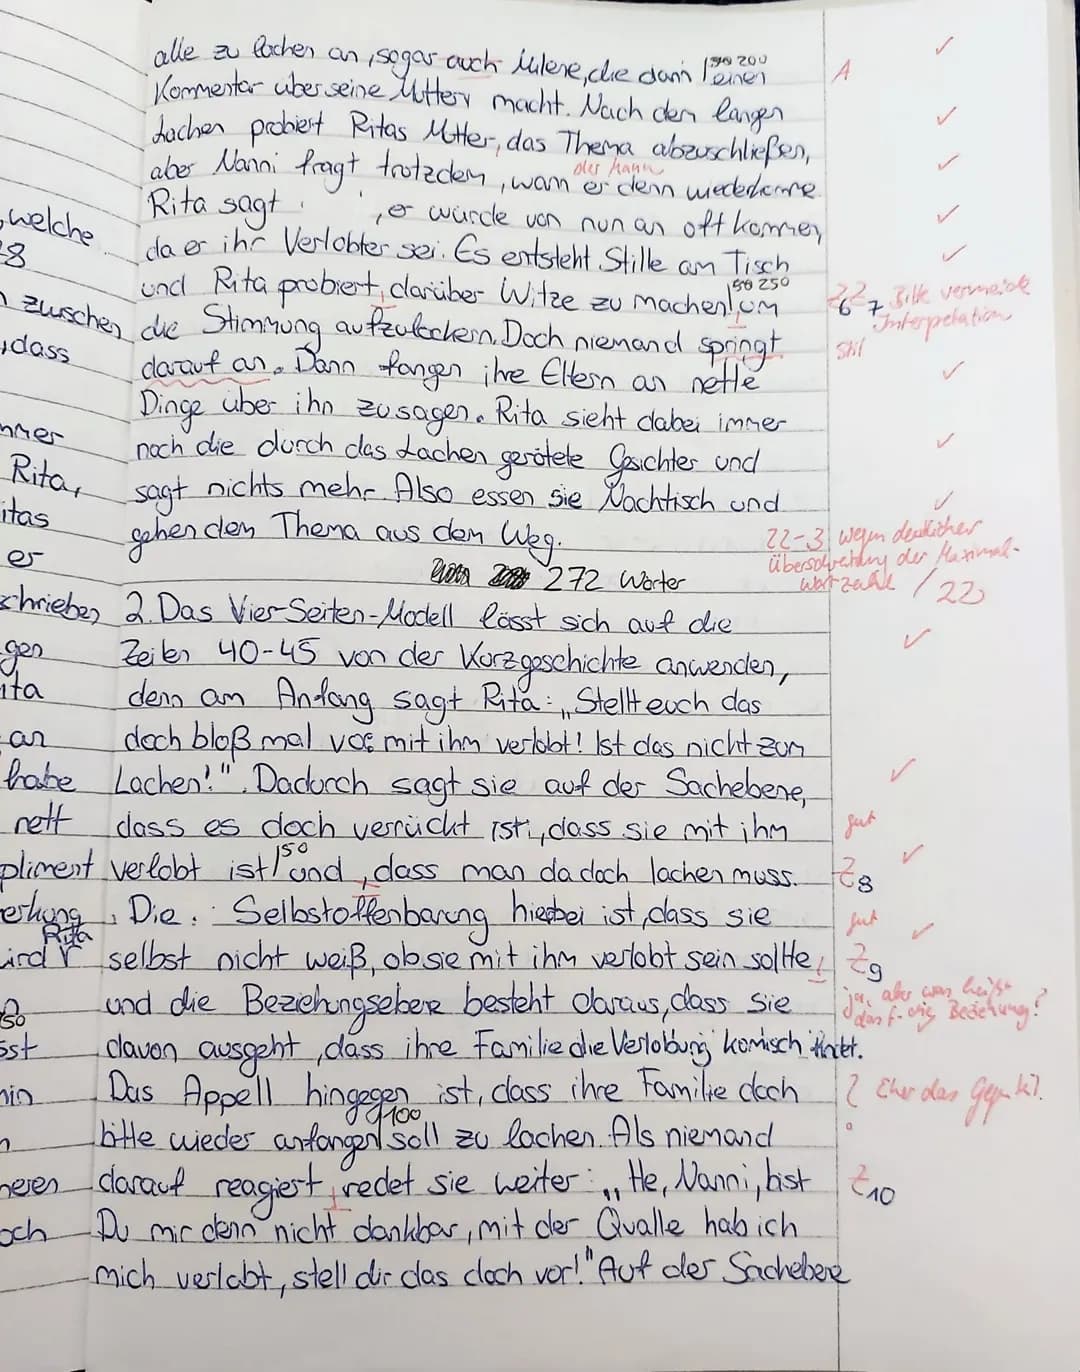 alle zu lachen an, sogar auch Milene, die dann einen
200
A
Kommentar über seine Mutter macht. Nach dem langen
Lachen probiert Ritas Mutter, das Thema abzuschließen,
der Mann
aber Nanni fragt trotzdem, wann er denn wiederkomme.
Rita sagt, er würde von nun an oft kommen,
, welche
da er ihr Verlobter sei. Es entsteht Stille am Tisch
8
250
und Rita probiert, darüber Witze zu machen, um
ZZ Bitte vermeide
6 7 Interpretation
zwischen
die Stimmung aufzulockern. Doch niemand springt
Stil
, dass
darauf an. Dann fangen ihre Eltern an nette
Dinge über ihn zu sagen. Rita sieht dabei immer
mmer
noch die durch das Lachen gerötete Gesichter und
Rita,
sagt nichts mehr. Also essen sie Nachtisch und
itas
gehen dem Thema aus dem Weg.
er
22-3 wegen deutlicher
Überschreitung der Maximal-
wortzahl / 22
272 Wörter
schrieben
2. Das Vier-Seiten-Modell lässt sich auf die
gen
Zeilen 40-45 von der Kurzgeschichte anwenden,
ita
denn am Anfang sagt Rita: „Stellt euch das
an
doch bloß mal vor mit ihm verlobt! Ist das nicht zum
habe
Lachen!". Dadurch sagt sie auf der Sachebene,
nett
dass es doch verrückt ist, dass sie mit ihm
gut
50
pliment
verlobt ist und, dass man da doch lachen muss.
Z8
erkung
Die Selbstoffenbarung hierbei ist, dass sie
gut
Rita
ird
selbst nicht weiß, ob sie mit ihm verlobt sein sollte,
Z9
und die Beziehungsebene besteht daraus, dass sie
ja, aber was heißt
das f. die Beziehung?
50
sst
davon ausgeht, dass ihre Familie die Verlobung komisch findet.
hin
Das Appell hingegen ist, dass ihre Familie doch
? Eher das Gegenteil.
100
bitte wieder anfangen soll zu lachen. Als niemand
neren
darauf reagiert, redet sie weiter: „He, Nanni, bist
Z10
och
Du mir denn nicht dankbar, mit der Qualle hab ich
mich verlobt, stell dir das doch vor!" Auf der Sachebene